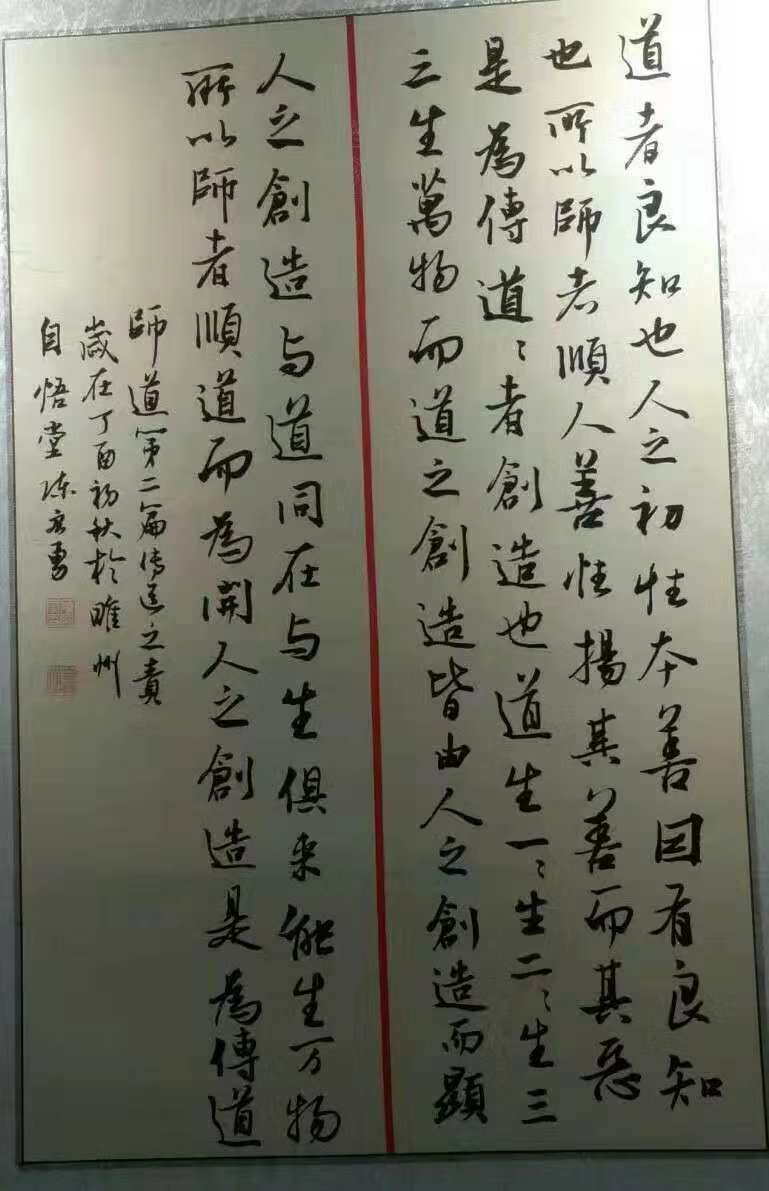 道者良知也人之初性本善因有良知
也所以師者順人善性揚其善而其惡
是為傳道〻者創造也道生一〻生二〻生三
三生萬物而道之創造皆由人之創造而顯
人之創造与道同在与生俱來能生万物
所以師者順道而為開人之創造是為傳道
師道第二篇傳道之責
歲在丁酉初秋於睢州
自悟堂陳